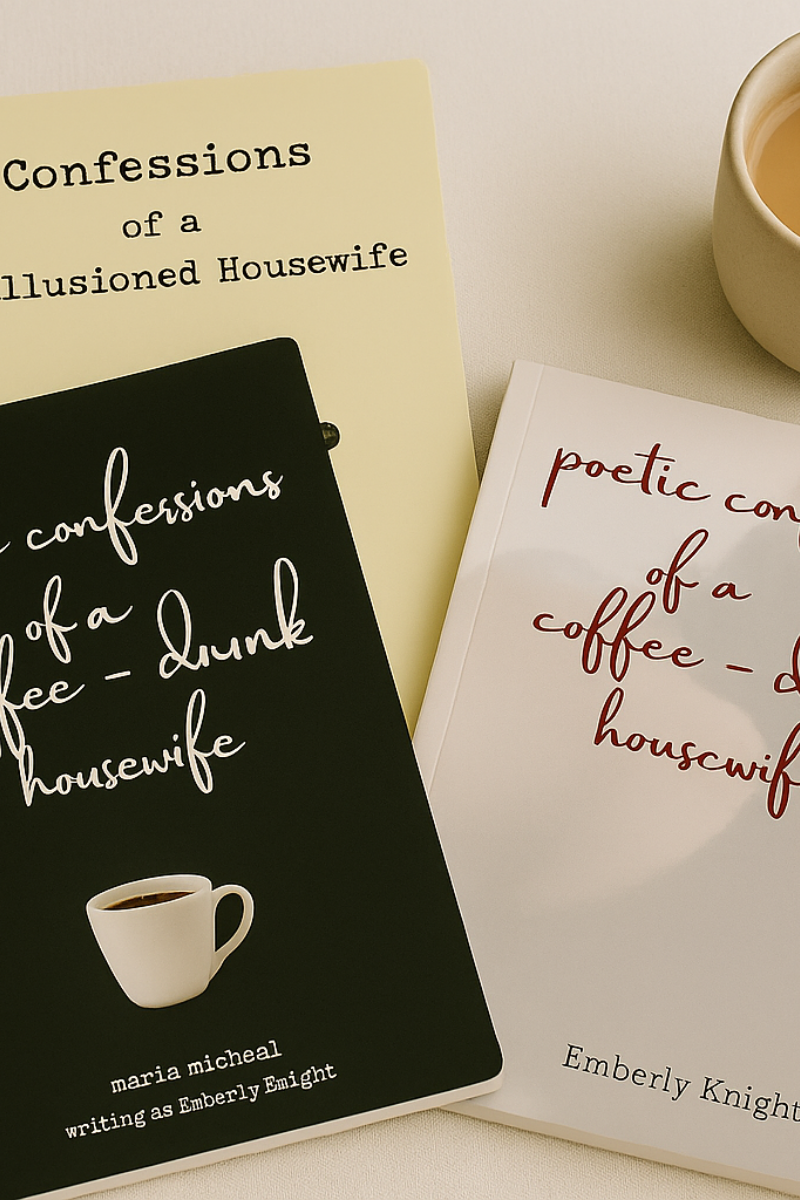 Confessions
of a
llusioned Housewife
confessions
of a
fee – drunk
housewife
maria micheal
writing as Emberly Emight
poetic con
of a
coffee – d
houscwif
Emberly Knight